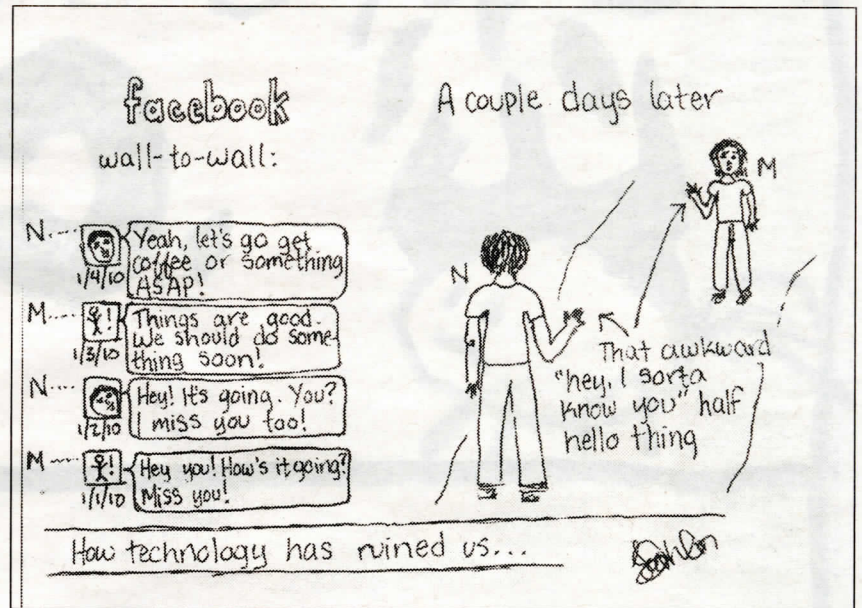 facebook
wall-to-wall:
N....
1/4/10
Yeah, let's go get
coffee or something
ASAP!
M....
!
1/3/10
Things are good.
We should do some-
thing soon!
N....
1/2/10
Hey! It's going. You?
I miss you too!
M....
!
1/1/10
Hey you! How's it going?
Miss you!
A couple days later
M
N
That awkward
"hey, I sorta
know you" half
hello thing
How technology has ruined us...